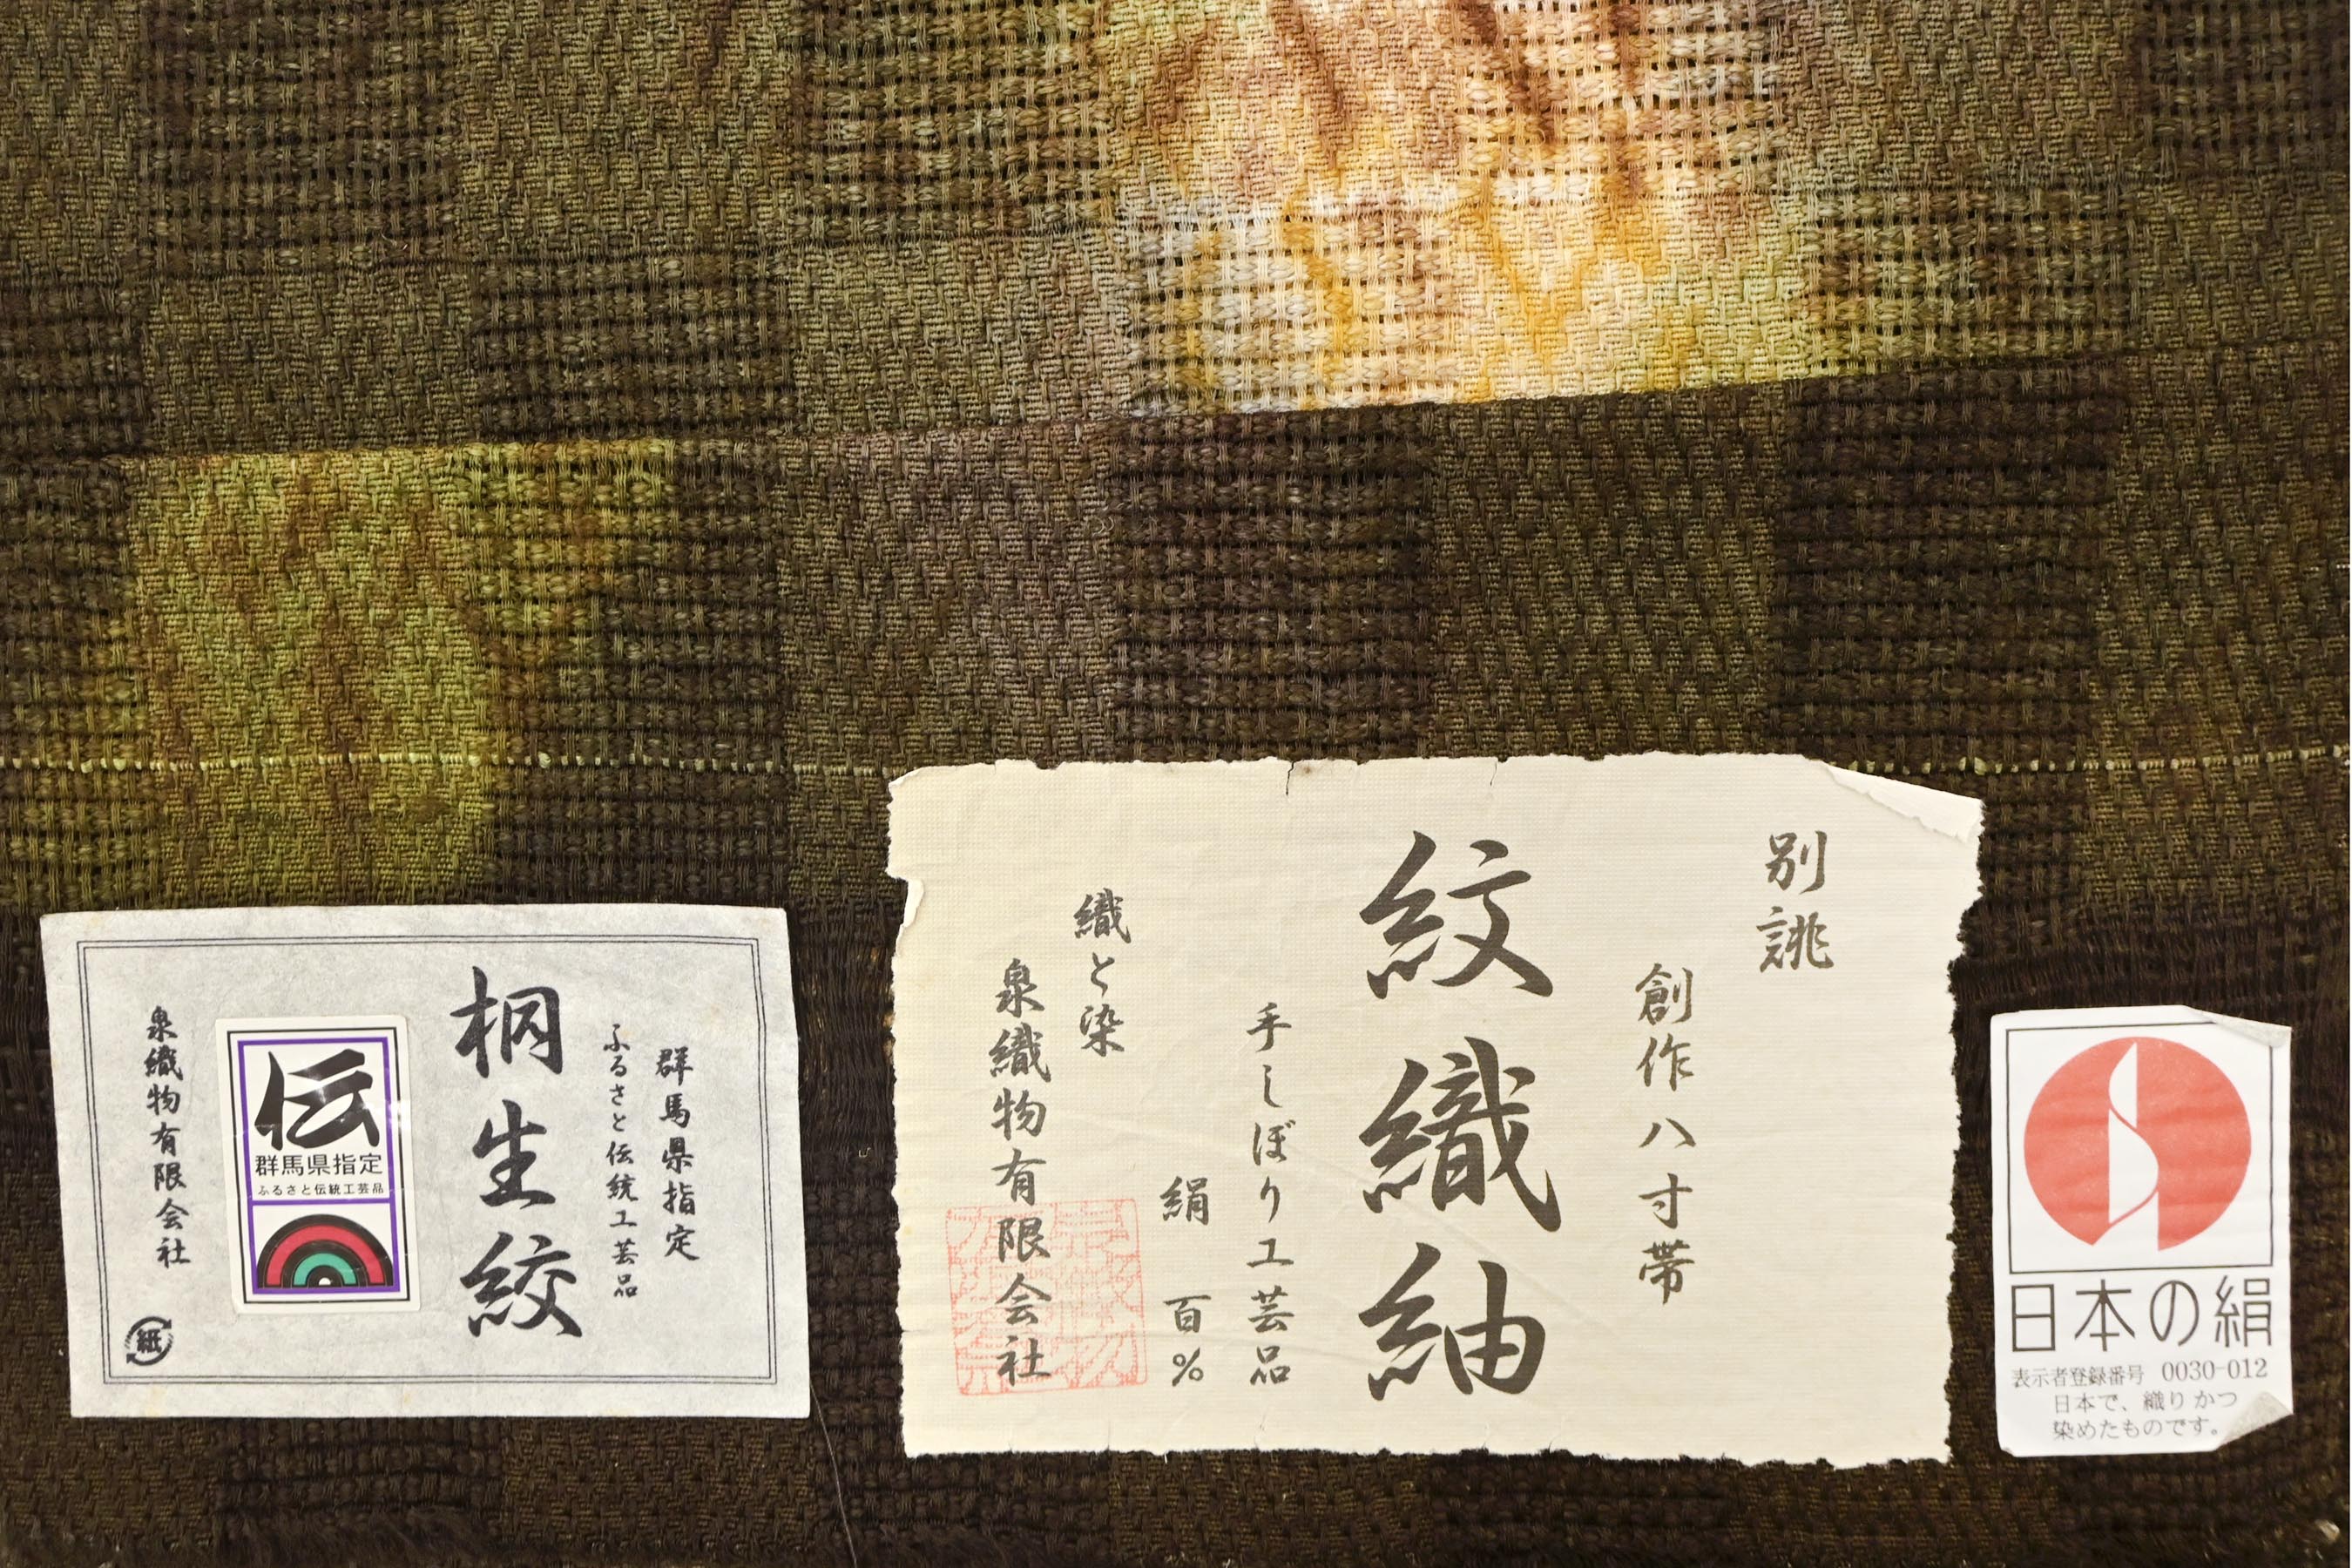 群馬県指定
ふるさと伝統工芸品
桐生絞
伝
群馬県指定
ふるさと伝統工芸品
泉織物有限会社
紙
別誂
創作八寸帯
紋織紬
手しぼり工芸品
絹 百%
織と染
泉織物有限会社
日本の絹
表示者登録番号 0030-012
日本で、織りかつ
染めたものです。